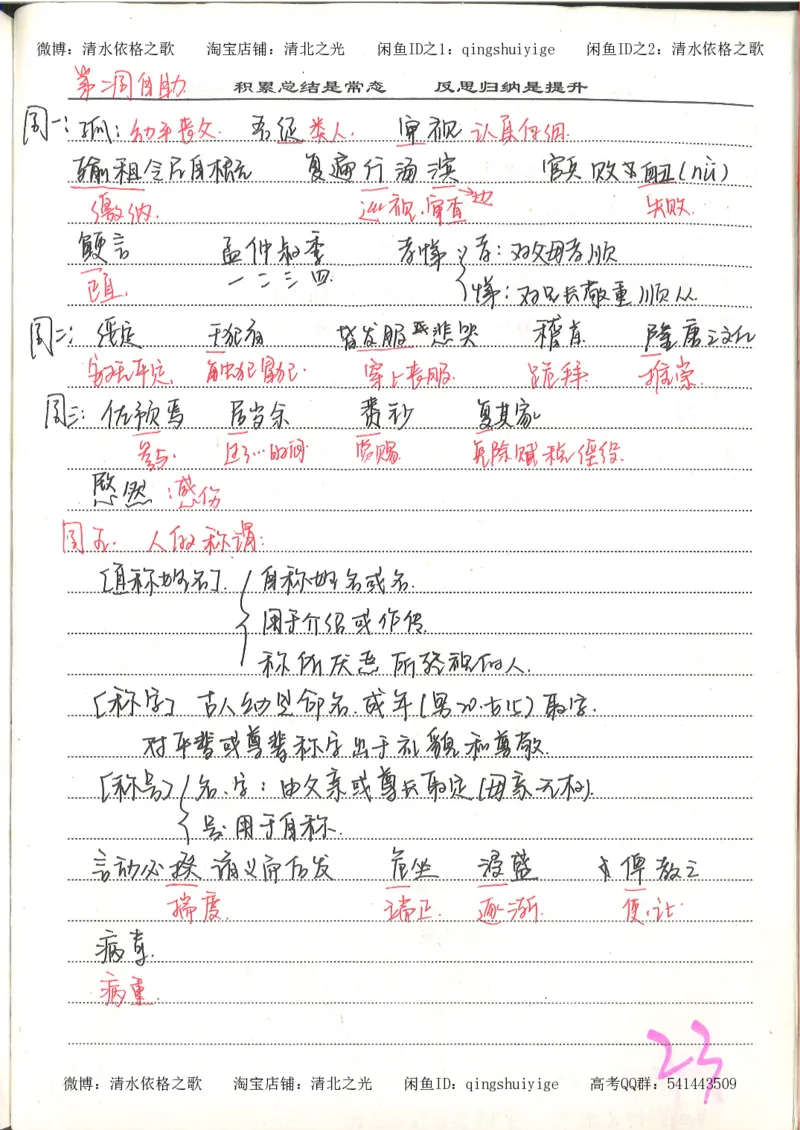 微博：清水依格之歌 淘宝店铺：清北之光 闲鱼ID之1：qingshuiyige 闲鱼ID之2：清水依格之歌
第二周自助 积累总结是常态 反思归纳是提升
周一：孤：幼年丧父. 类人. 审视 认真仔细.
输租 复遍行汤滨 官兵败衄(nǜ)
缴纳. 巡视.审查 边 失败.
鲠言 孟仲叔季 孝悌 孝：对父母孝顺
直. 一二三四. 悌：对兄长敬重顺从
周二： 绥定 干犯 皆发服 悲哭 稽首. 隆唐之文化
安抚平定 触犯冒犯. 穿上丧服. 跪拜. 推崇.
周三：佐预焉 居岁余 赉秒 复其家
参与. 过了…时间 赏赐. 免除赋税徭役.
愍然：感伤
周五. 人的称谓：
[直称姓名]. 自称姓名或名.
用于介绍或作传.
称所厌恶所轻视的人.
[称字] 古人幼时命名.成年(男20.女15)取字.
对平辈或尊辈称字出于礼貌和尊敬.
[称号] 名、字：由父亲或尊长取定(母亲无权).
号：用于自称.
言动必揆诸义而后发 危坐 浸盛 俾教之
揣度. 端正. 逐渐. 使.让.
病革.
病重.
23
微博：清水依格之歌 淘宝店铺：清北之光 闲鱼ID：qingshuiyige 高考QQ群：541443509